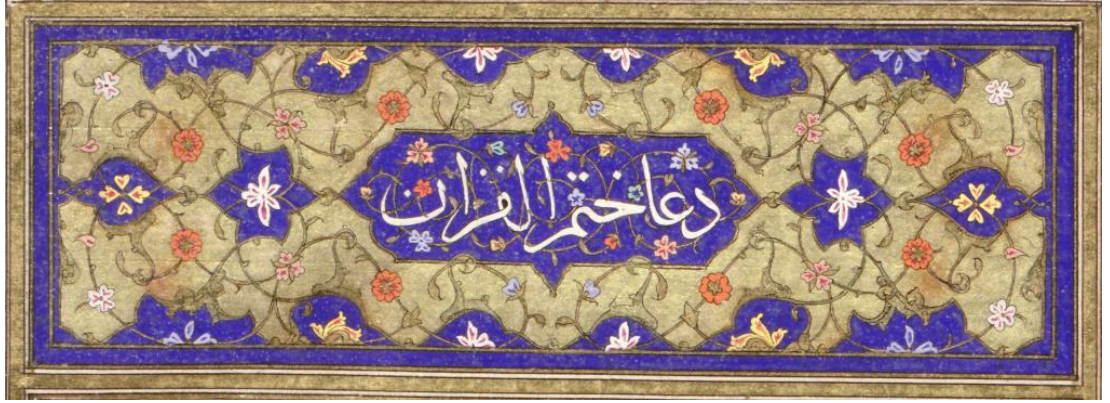 دعا ختم القران